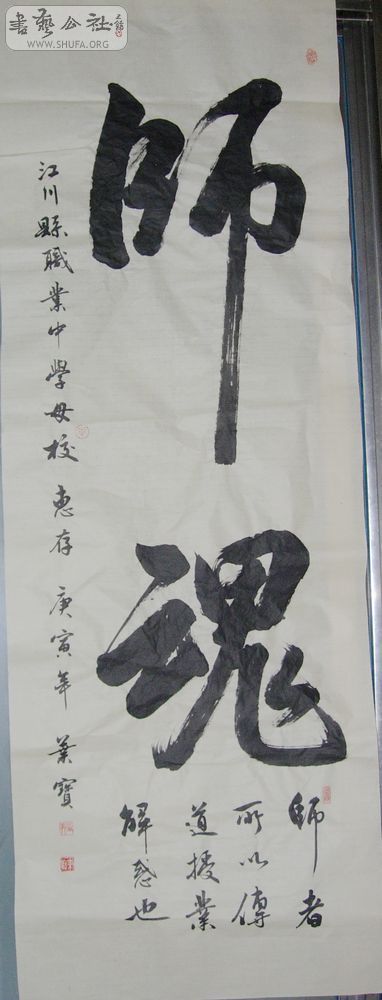 書藝公社
WWW.SHUFA.ORG
師魂
師者
所以傳
道授業
解惑也
江川縣職業中學母校 惠存 庚寅年 業寶